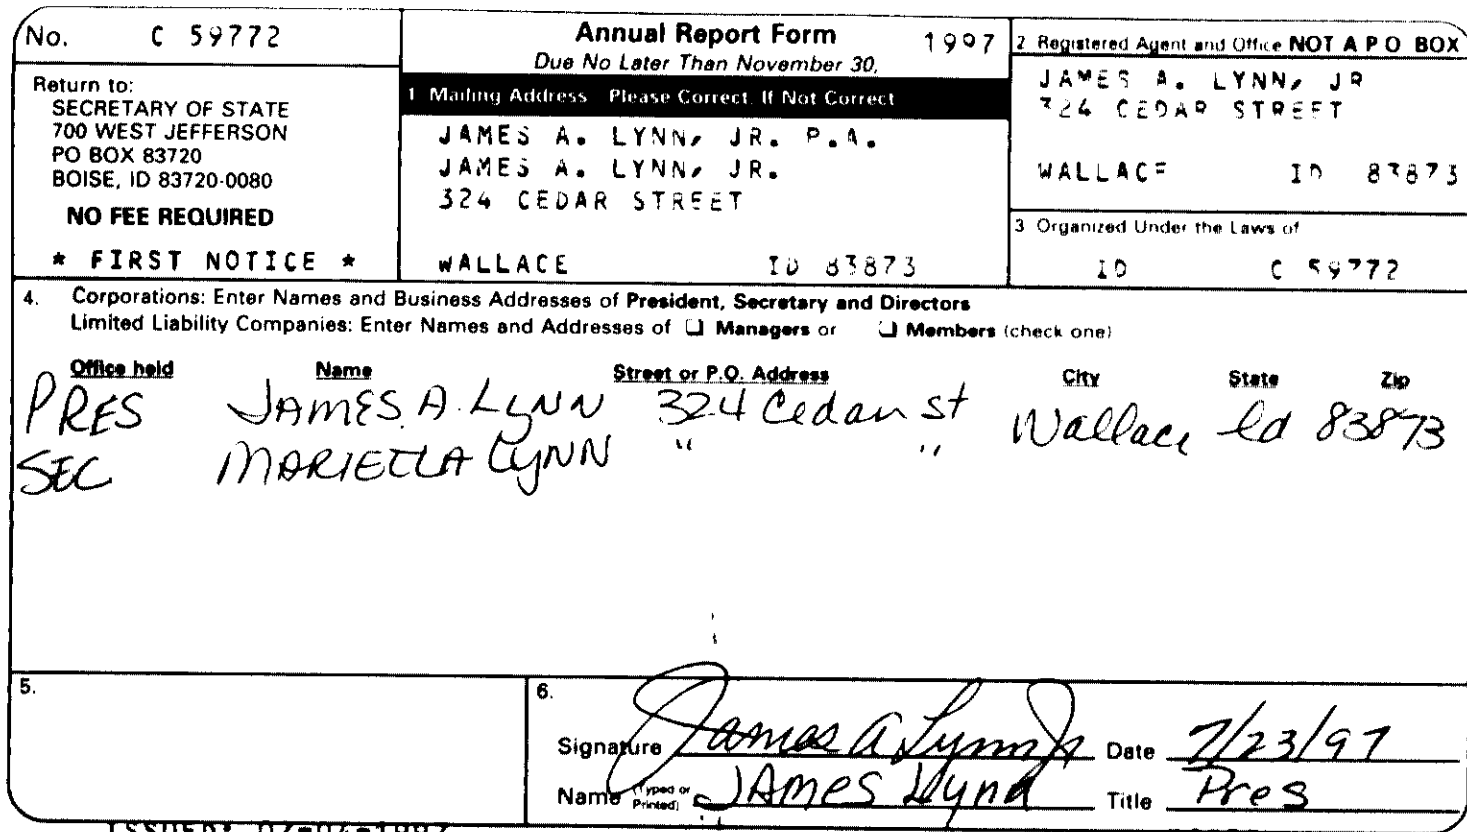 No. C 59772
Return to:
SECRETARY OF STATE
700 WEST JEFFERSON
PO BOX 83720
BOISE, ID 83720-0080
NO FEE REQUIRED
* FIRST NOTICE *
Annual Report Form 1997
Due No Later Than November 30,
1 Mailing Address Please Correct, If Not Correct
JAMES A. LYNN, JR. P.A.
JAMES A. LYNN, JR.
324 CEDAR STREET
WALLACE ID 83873
2 Registered Agent and Office NOT A P O BOX
JAMES A. LYNN, JR
324 CEDAR STREET
WALLACE ID 83873
3 Organized Under the Laws of
ID C 59772
4. Corporations: Enter Names and Business Addresses of President, Secretary and Directors
Limited Liability Companies: Enter Names and Addresses of ☐ Managers or ☐ Members (check one)
Office held Name Street or P.O. Address City State Zip
PRES JAMES A. LYNN 324 Cedar st Wallace Id 83873
SEC MARIETTA LYNN " "
5.
6.
Signature James A Lynn Jr Date 7/23/97
Name (Typed or Printed) JAMES Lynn Title Pres